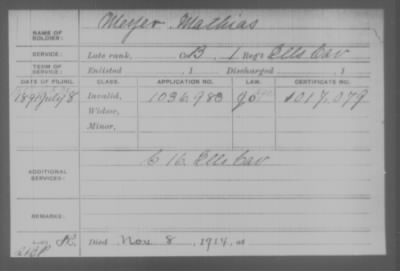 NAME OF SOLDIER: Meyer Mathias
SERVICE: Late rank, Co B, 1 Reg't Ills Cav
TERM OF SERVICE: Enlisted , 1 Discharged , 1
DATE OF FILING. CLASS. APPLICATION NO. LAW. CERTIFICATE NO.
1891 July 8 Invalid, 1036.983 1017.079
Widow,
Minor,
ADDITIONAL SERVICES: C 16 Ills Cav
REMARKS:
Died Nov 8, 1914, at